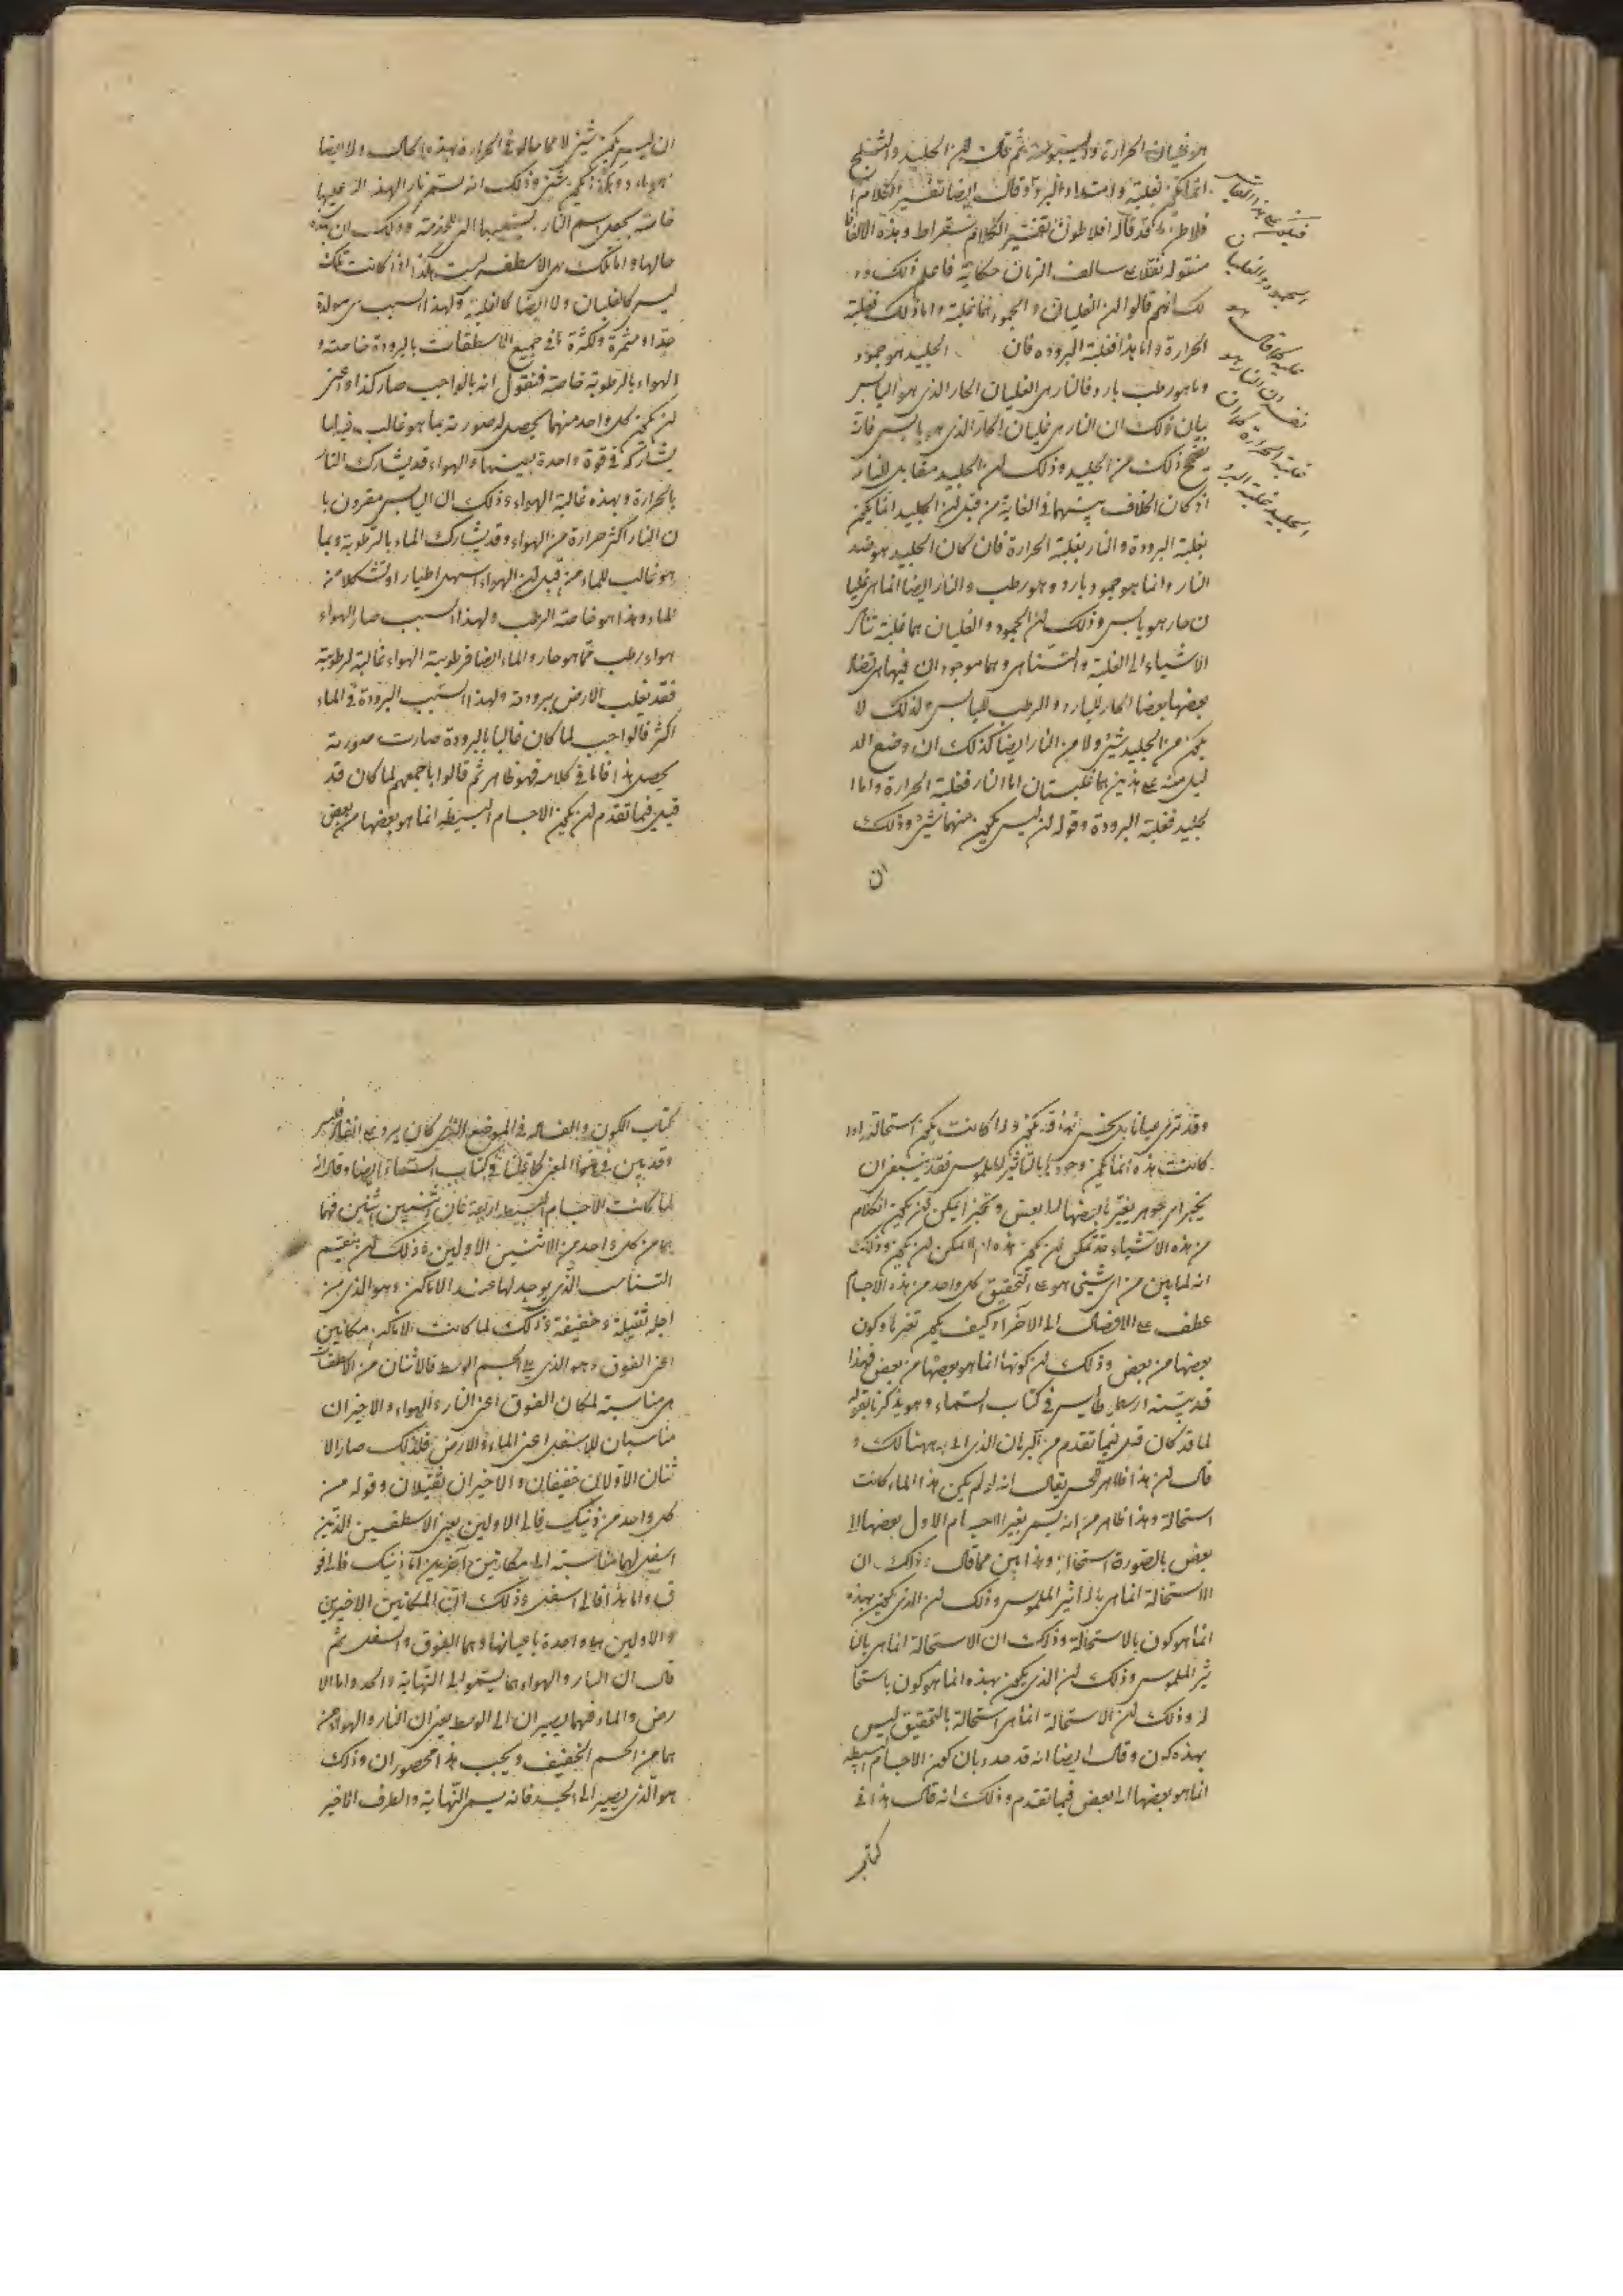 هو غليان الحرارة واليبوسة ثم قال لان الجليد والثلج
انما يكون بغلبة وامتداد البرد وقال ايضا تفسير الكلام ا
فلاطن قد قاله افلاطون تفسير الكلام سقراط وهذه الالفاظ
منقوله نقلا على سالف الزمان حكاية فاعلم ذلك و
لك انهم قالوا ان الغليان والجمود هما غلبة واما ذلك فغلبة
الحرارة واما هذا فغلبة البرودة فان الجليد هو جمود
وما هو رطب بارد فالنار هى الغليان الحار الذى هو اليابس
بيان ذلك ان النار هى غليان الحار الذى هو يابس فانه
يتضح ذلك من الجليد وذلك لان الجليد مقابل للنار
اذ كان الخلاف بينهما فى الغاية من قبل ان الجليد انما يكون
بغلبة البرودة والنار بغلبة الحرارة فان كان الجليد هو ضد
النار وانما هو جمود بارد وهو رطب والنار ايضا انما هى غليا
ن حار هو يابس وذلك لان الجمود والغليان هما غلبة
الاشياء الى الغلبة والتناهى وهما موجودان فيها هى تضاد
بعضها بعضا الحار للبارد والرطب لليابس ولذلك لا
يكون من الجليد شئ ولا من النار ايضا كذلك ان وضع الد
ليل منه على هذين هما غلبتان اما النار فغلبة الحرارة واما ا
لجليد فغلبة البرودة وقوله لان ليس يكون منهما شئ وذلك
ان
فيلون على هذا المثال
الجمود والغليان
غلبة كما قال هو
نفسه ان النار هو
غلبة الحرارة كما ان
الجليد غلبة البرد
ان ليس يكون شئ لا مما حاله فى الحرارة بهذه الحال ولا ايضا
خاصة يجعل اسم النار وذلك ان هذه
حالها واما تلك هى الاسطقس ليست هكذا اذ كانت تلك
ليس كالغليان ولا ايضا كالغلبة ولهذا السبب هى مولدة
جدا ومثمرة ولكثرة فى جميع الاسطقسات بالبرودة خاصة و
الهواء بالرطوبة خاصة فنقول انه بالواجب صار كذا واعنى
ان يكون كل واحد منهما يحصل له صورته بما هو غالب فيه اما
يشاركه فى قوة واحدة بعينها والهواء قد يشارك النار
بالحرارة وبهذه غالبة الهواء وذلك ان اليابس مقرون با
ن النار اكثر حرارة من الهواء وقد يشارك الماء بالرطوبة وبها
هو غالب للماء من قبل ان الهواء اسهل اطيار او تشكلا من
الماء وهذا هو خاصة الرطب ولهذا السبب صار الهواء
هواء رطب مما هو حار والماء ايضا فرطوبة الهواء غالبة لرطوبة
فقد تغلب الارض ببرودته ولهذا السبب البرودة فى الماء
اكثر فالواجب لما كان غالبا بالبرودة صارت صورته
يحصل هذا فاما فى كلامه فهو ظاهر ثم قالوا باجمعهم لما كان قد
قيل فيما تقدم ان يكون الاجسام البسيطة انما هو بعضها من بعض
وقد ترى عيانا بالحس هذا قد يكون ولما كانت يكون استحالة اذا
كانت هذه انما يكون وجودها بالتاثير الملموس فقد ينبغى ان
يخبر اى جوهر يغير بعضها الى بعض
من هذه الاشياء قد يمكن ان يكون هذه ام لا يمكن ان يكون وذلك
انه لما بين من اى شئ هو على التحقيق كل واحد من هذه الاجسام
عطف على الاتصال الى الاخر وكيف يكون تغيرها وكون
بعضها من بعض وذلك لان كونها انما هو بعضها من بعض فهذا
قد بينه ارسطوطاليس فى كتاب السماء وهو يذكرنا بقوله
لما قد كان قيل فيما تقدم من البرهان الذى اتى به هنالك و
قال ان هذا ظاهر للحس يقال انه لو لم يكن هذا لما كانت
استحالة وهذا ظاهر من انه يسمى تغير الاجسام الاول بعضها الا
بعض بالصورة استحالة وهذا بين مما قال وذلك ان
الاستحالة انما هى بالتاثير الملموس وذلك ان الذى يكون بهذه
انما هو كون بالاستحالة وذلك ان الاستحالة انما هى بالتا
ثير الملموس وذلك ان الذى يكون بهذه انما هو كون باستحا
له وذلك ان الاستحالة انما هى استحالة بالتحقيق ليس
بهذه كون وقال ايضا انه قد حدد بان كون الاجسام البسيطة
انما هو بعضها الى بعض فيما تقدم وذلك انه قال هذا فى
كتاب
كتاب الكون والفساد فى الموضع الذى كان يرد على
وقد بين هذا المعنى كما قلنا فى كتاب السماء ايضا وقال انه
لما كانت الاجسام البسيطة اربعة فان اثنين اثنين فهما
هما من كل واحد من الاثنين الاولين وذلك ان بتقسم
التناسب الذى يوجد لها عند الاماكن وهو الذى من
اجله ثقيلة وخفيفة وذلك لما كانت الاماكن مكانين
اعنى الفوق وهو الذى على الجسم الوسط فالاثنان من الاسطقسات
هى مناسبة لمكان الفوق اعنى النار والهواء والاخيران
مناسبان للاسفل اعنى الماء والارض فلذلك صار الا
ثنان الاولان خفيفان والاخيران ثقيلان وقوله من
كل واحد من ذينك فالى الاولين يعنى الاسطقسين الذين
اسفل لهما مناسبة الى مكانين آخرين اما ذينك فالى فو
ق واما هذا فالى اسفل وذلك ان المكانين الاخيرين
والاولين هى واحدة باعيانها وهما الفوق والسفل ثم
قال ان النار والهواء هما يسمو الى النهاية والحد واما الا
رض والماء فهما يصيران الى الوسط يعنى ان النار والهواء من
هما من الجسم الخفيف ويجب هذا محصوران وذلك
هو الذى يصير الى الحد فانه يسمى النهاية والطرف الاخير